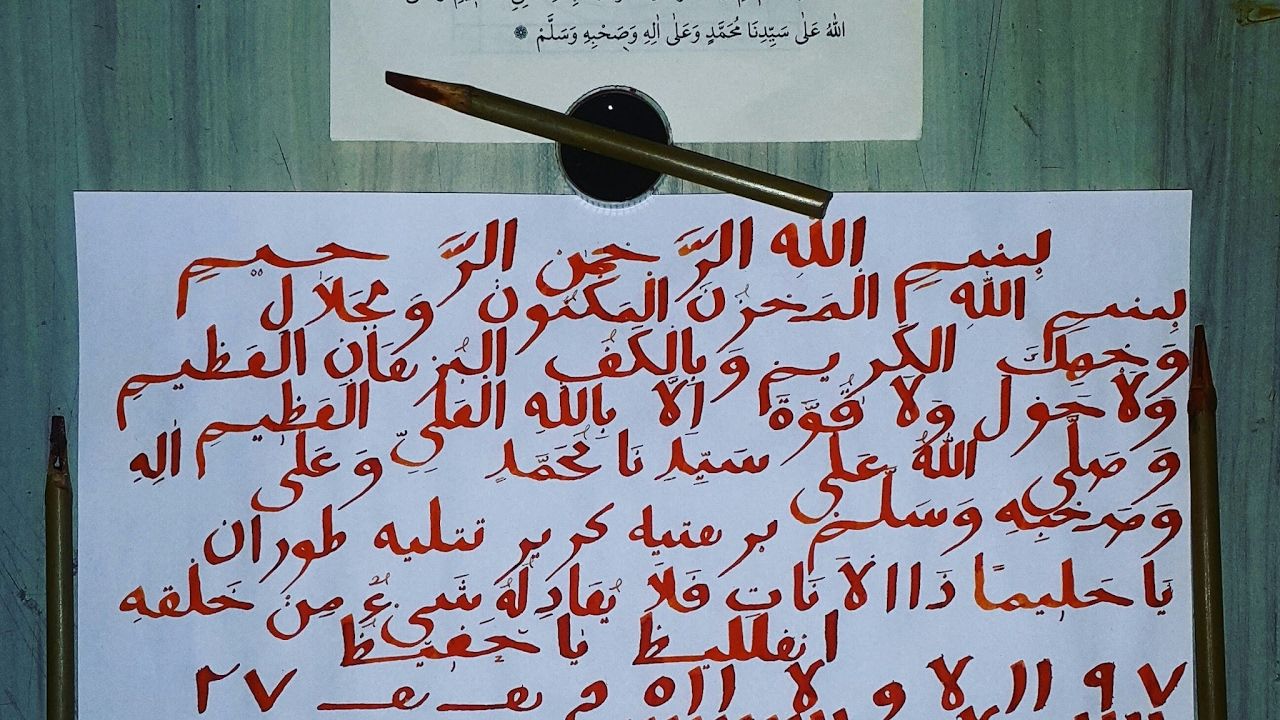 اللهُ عَلٰى سَيِّدِنَا مُحَمَّدٍ وَعَلٰى اٰلِهِ وَصَحْبِهِ وَسَلَّمْ
بِسْمِ اللهِ الرَّحْمٰنِ الرَّحِيمِ
بِسْمِ اللهِ الْمَخْزُنَ الْمَكْنُونِ وَ بِجَلَالِ
وَجْهِكَ الْكَرِيمِ وَ بِالْكَفِّ الْبُرْهَانِ الْعَظِيمِ
وَلَا حَوْلَ وَلَا قُوَّةَ اِلَّا بِاللهِ الْعَلِىِّ الْعَظِيمِ
وَ صَلَّى اللهُ عَلَى سَيِّدِنَا مُحَمَّدٍ وَعَلَى اٰلِهِ
وَصَحْبِهِ وَسَلَّمْ برهتيه كرير تتليه طوران
يَا حَلِيمًا ذَا الْاَنَاتِ فَلَا يُعَادِلُهُ شَىْءٌ مِنْ خَلْقِهِ
يَا حَفِيظُ